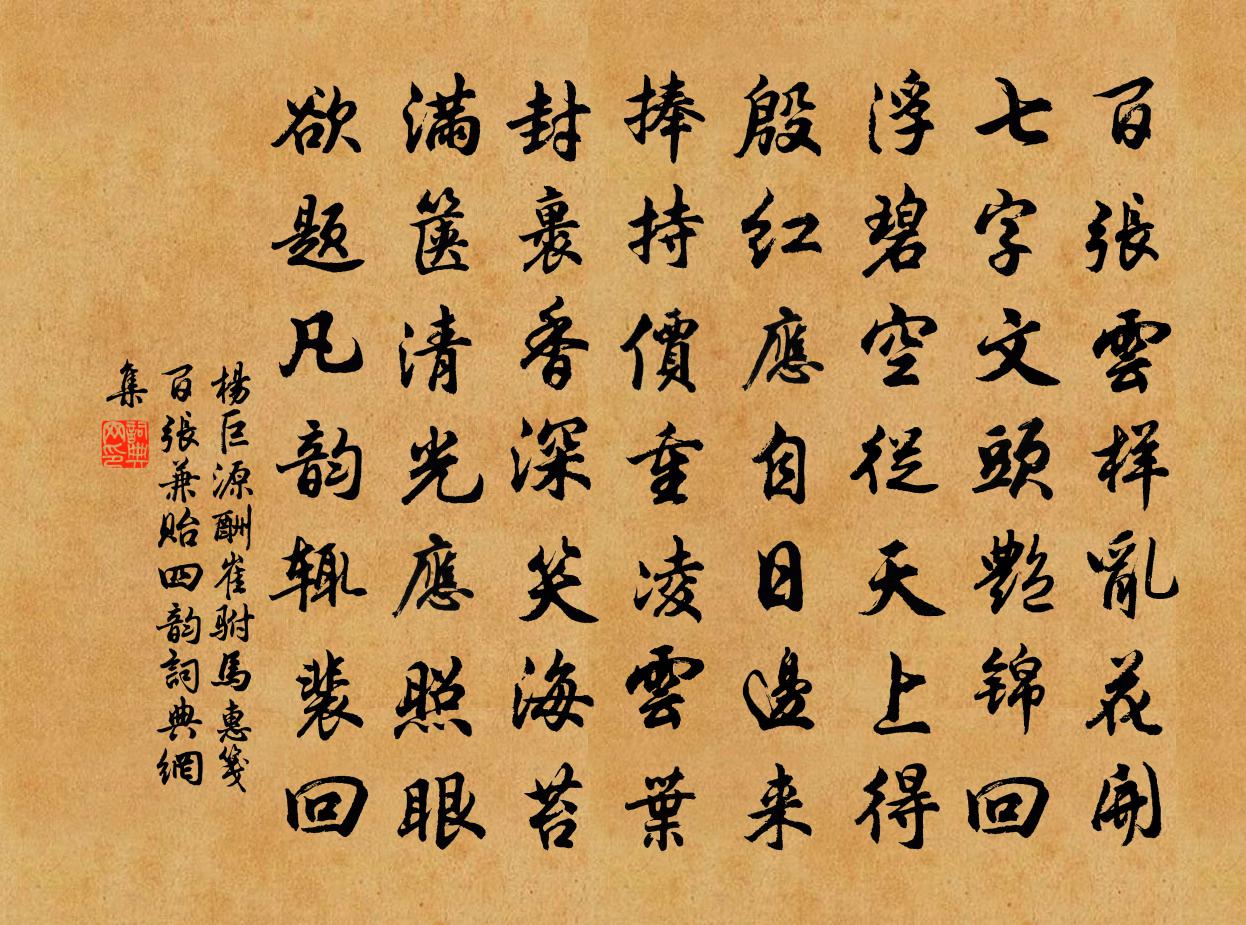 百張雲样亂花開
七字文頭艷錦回
浮碧空從天上得
殷紅應自日邊来
捧持價重凌雲葉
封裹香深笑海苔
滿篋清光應照眼
欲题凡韵辄裴回
楊巨源酬崔駙馬惠箋
百張兼貽四韵詞典網
集
詞典
网印